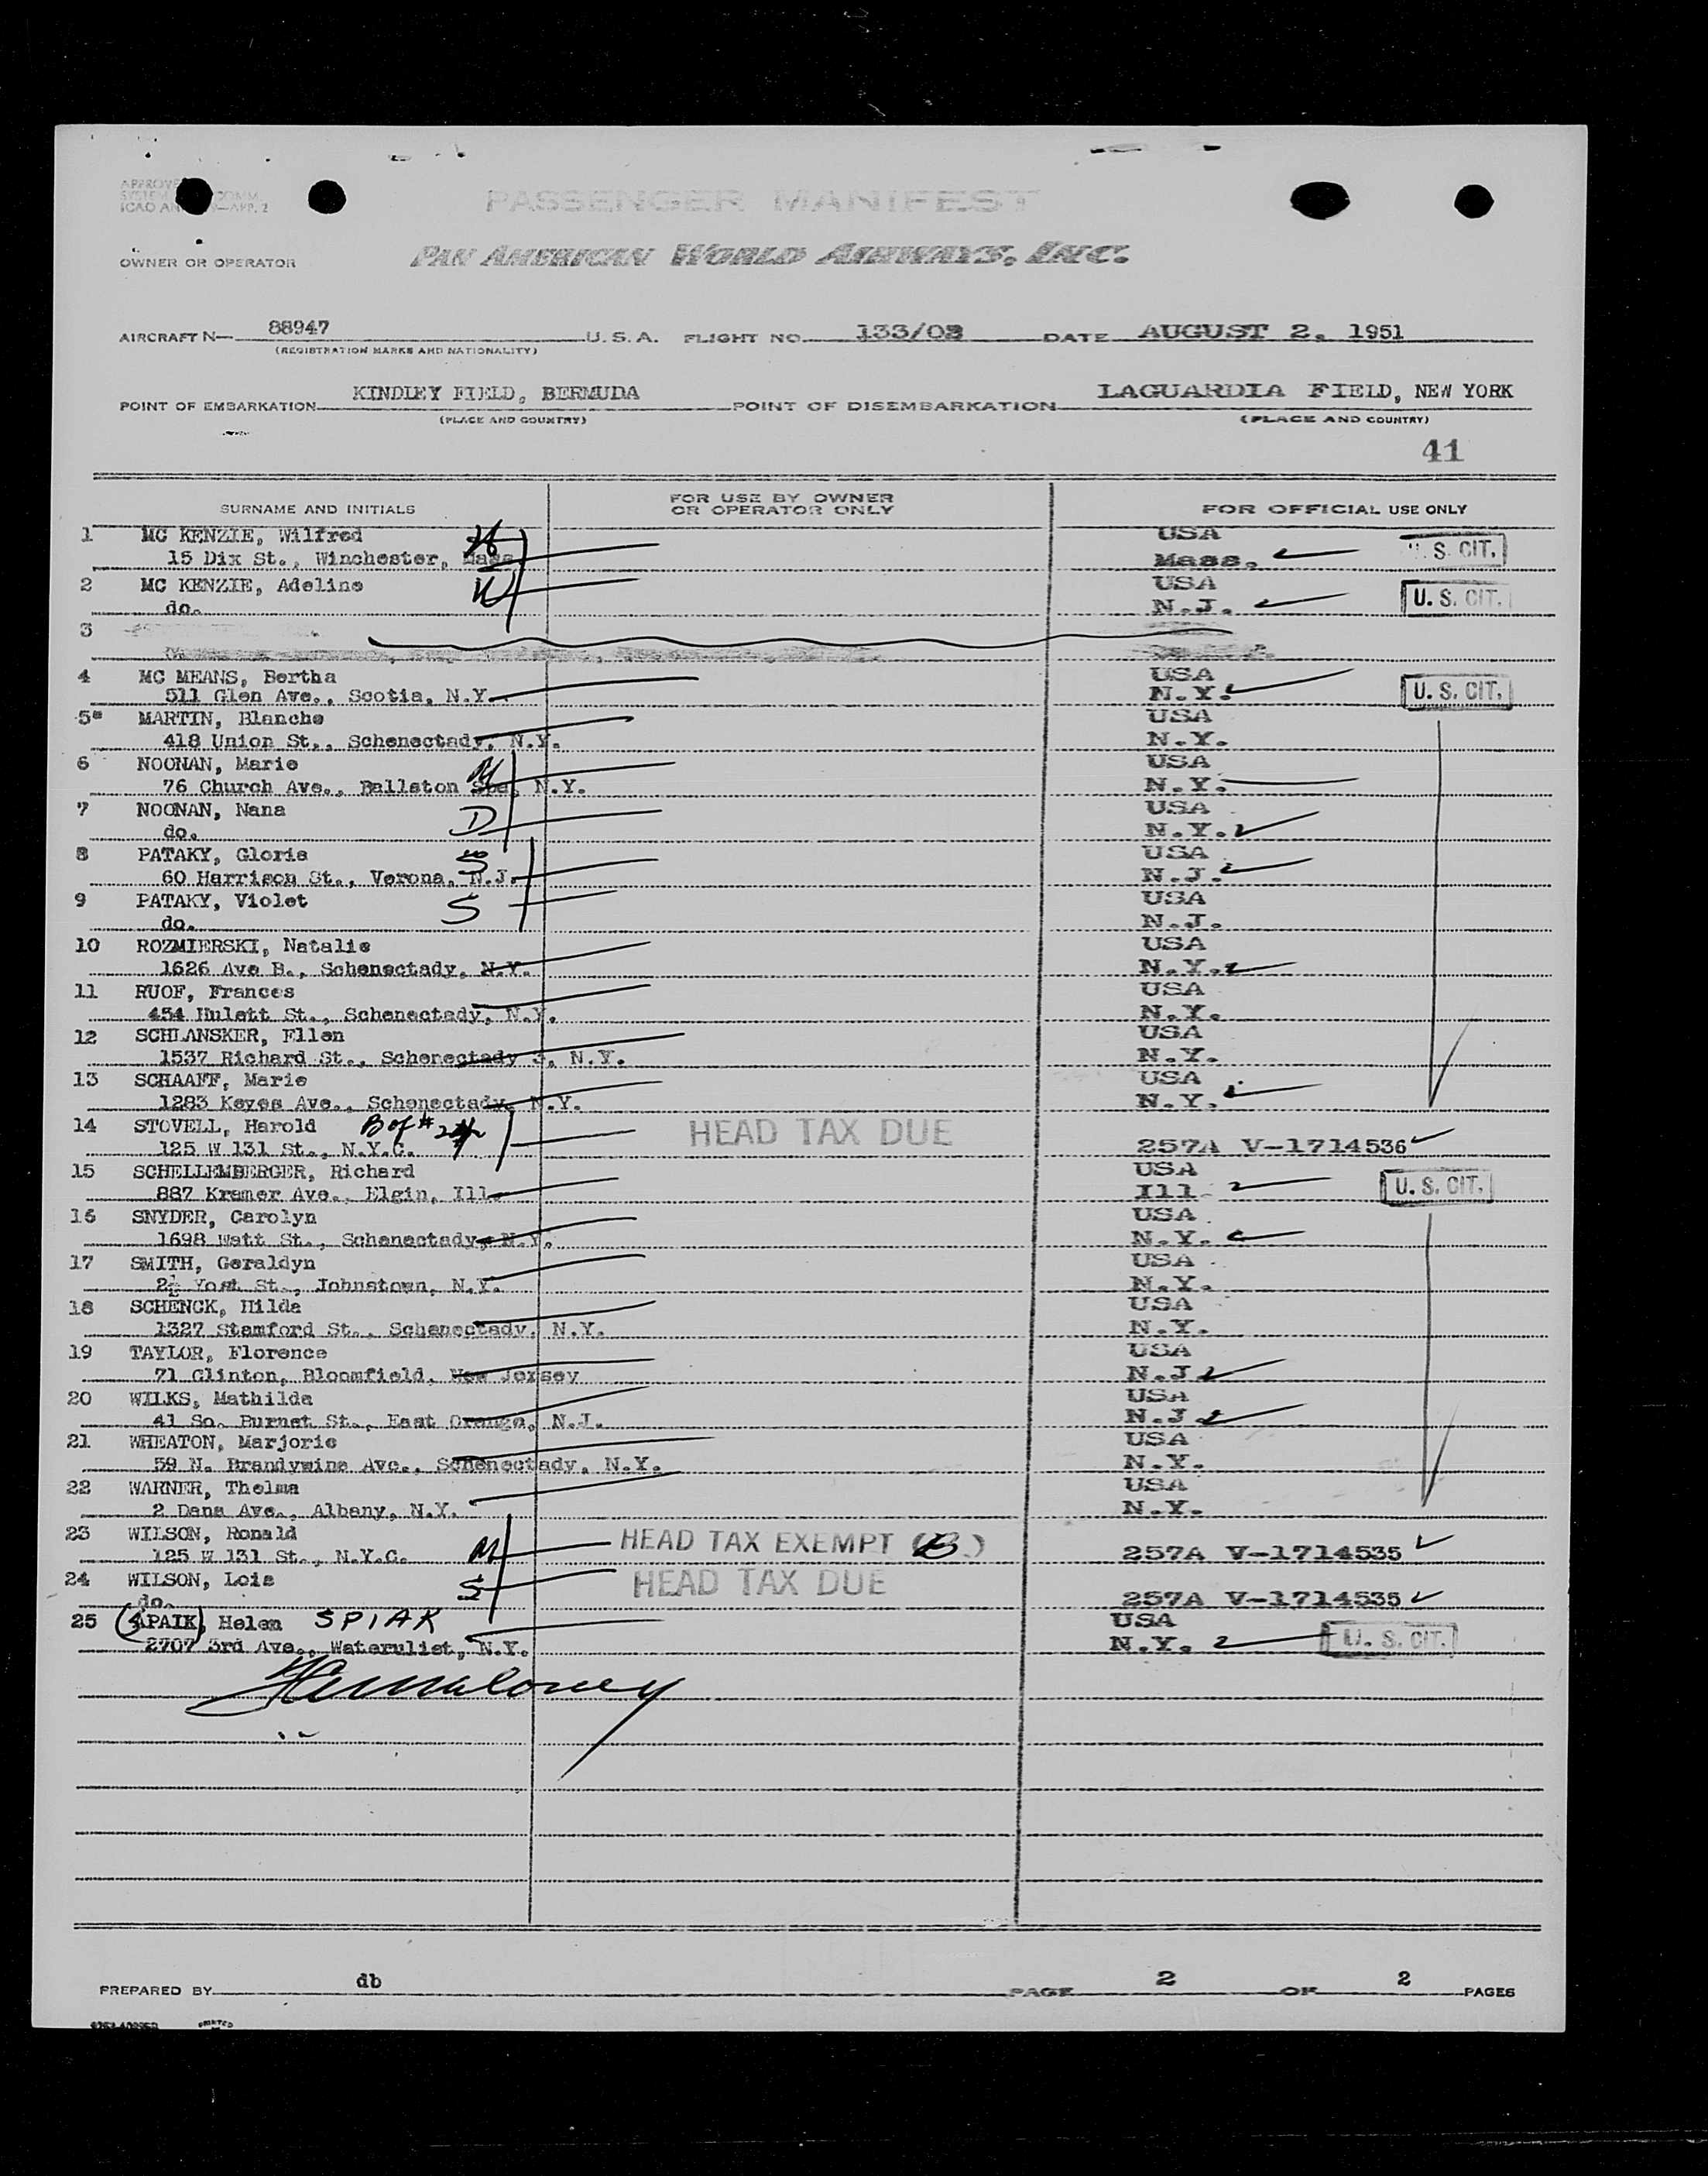 PASSENGER MANIFEST
OWNER OR OPERATOR PAN AMERICAN WORLD AIRWAYS, INC.
AIRCRAFT N— 88947 U.S.A. FLIGHT NO. 133/02 DATE AUGUST 2, 1951
(REGISTRATION MARKS AND NATIONALITY)
POINT OF EMBARKATION KINDLEY FIELD, BERMUDA POINT OF DISEMBARKATION LAGUARDIA FIELD, NEW YORK
(PLACE AND COUNTRY) (PLACE AND COUNTRY)
41
SURNAME AND INITIALS FOR USE BY OWNER OR OPERATOR ONLY FOR OFFICIAL USE ONLY
1 MC KENZIE, Wilfred H USA
15 Dix St., Winchester, Mass. Mass. U. S. CIT.
2 MC KENZIE, Adeline W USA
do. N.J. U. S. CIT.
3
4 MC MEANS, Bertha USA
511 Glen Ave., Scotia, N.Y. N.Y. U. S. CIT.
5 MARTIN, Blanche USA
418 Union St., Schenectady, N.Y. N.Y.
6 NOONAN, Marie M USA
76 Church Ave., Ballston Spa, N.Y. N.Y.
7 NOONAN, Nana D USA
do. N.Y.
8 PATAKY, Gloria S USA
60 Harrison St., Verona, N.J. N.J.
9 PATAKY, Violet S USA
do. N.J.
10 ROZMIERSKI, Natalie USA
1626 Ave B., Schenectady, N.Y. N.Y.
11 RUOF, Frances USA
454 Hulett St., Schenectady, N.Y. N.Y.
12 SCHLANSKER, Ellen USA
1537 Richard St., Schenectady 3, N.Y. N.Y.
13 SCHAAFF, Marie USA
1283 Keyes Ave., Schenectady, N.Y. N.Y.
14 STOVELL, Harold B of # 24 HEAD TAX DUE
125 W 131 St., N.Y.C. 257A V-1714536
15 SCHELLEMBERGER, Richard USA
887 Kramer Ave., Elgin, Ill. Ill U. S. CIT.
16 SNYDER, Carolyn USA
1698 Watt St., Schenectady, N.Y. N.Y.
17 SMITH, Geraldyn USA
2½ Yost St., Johnstown, N.Y. N.Y.
18 SCHENCK, Hilda USA
1327 Stamford St., Schenectady, N.Y. N.Y.
19 TAYLOR, Florence USA
71 Clinton, Bloomfield, New Jersey N.J
20 WILKS, Mathilda USA
41 So. Burnet St., East Orange, N.J. N.J
21 WHEATON, Marjorie USA
59 N. Brandywine Ave., Schenectady, N.Y. N.Y.
22 WARNER, Thelma USA
2 Dana Ave., Albany, N.Y. N.Y.
23 WILSON, Ronald HEAD TAX EXEMPT (B.)
125 W 131 St., N.Y.C. M 257A V-1714535
24 WILSON, Lois S HEAD TAX DUE
do. 257A V-1714535
25 (SPAIK), Helen SPIAK USA
2707 3rd Ave., Waterulist, N.Y. N.Y. U. S. CIT.
PREPARED BY db PAGE 2 OF 2 PAGES